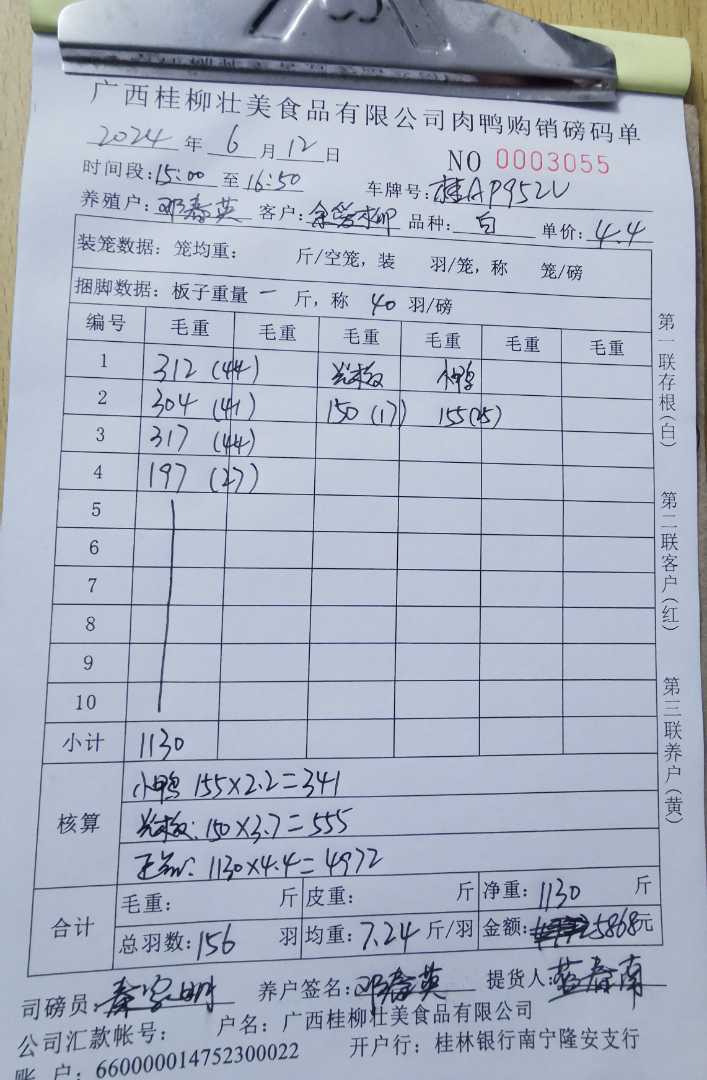 广西桂柳壮美食品有限公司肉鸭购销磅码单
2024 年 6 月 12 日 NO 0003055
时间段: 15:00 至 16:50 车牌号: 桂AP952U
养殖户: 邓春英 客户: 品种: 白 单价: 4.4
装笼数据: 笼均重: 斤/空笼, 装 羽/笼, 称 笼/磅
捆脚数据: 板子重量 一 斤, 称 40 羽/磅
编号 毛重 毛重 毛重 毛重 毛重 毛重
1 312 (44) 小鸭
2 304 (41) 150 (17) 155(25)
3 317 (44)
4 197 (27)
5
6
7
8
9
10
小计 1130
核算 小鸭 155×2.2=341
150×3.7=555
1130×4.4=4972
合计 毛重: 斤 皮重: 斤 净重: 1130 斤
总羽数: 156 羽 均重: 7.24 斤/羽 金额: 5868元
司磅员: 养户签名: 邓春英 提货人: 蓝春南
公司汇款帐号: 户名: 广西桂柳壮美食品有限公司
账 户: 660000014752300022 开户行: 桂林银行南宁隆安支行
第一联存根(白)
第二联客户(红)
第三联养户(黄)